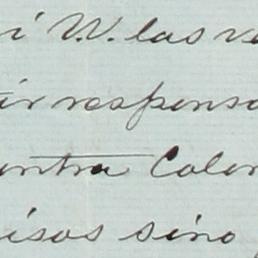 i V. las ve
ir respensa
entra Caler
isos sino